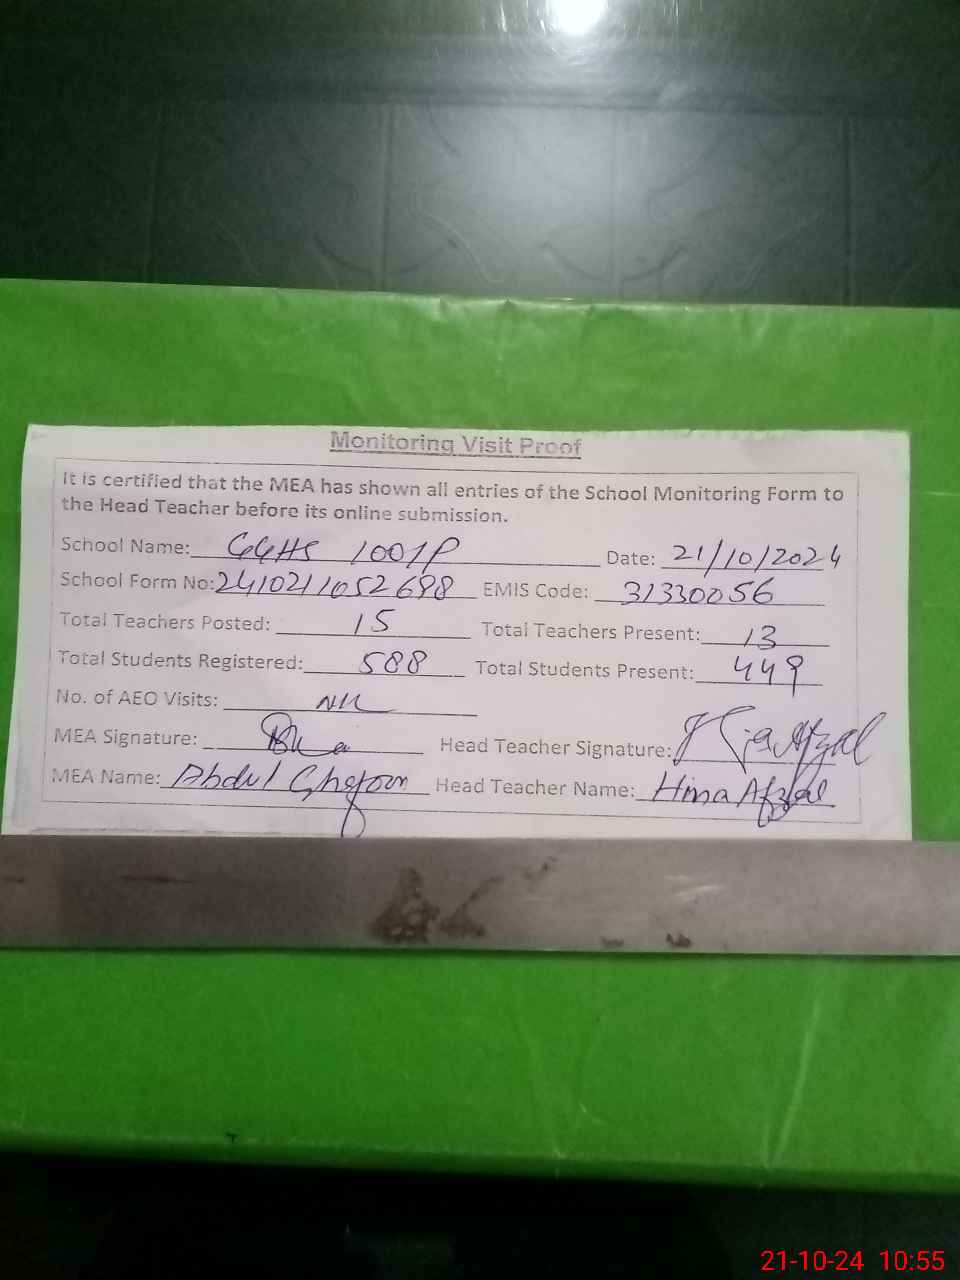 Monitoring Visit Proof
It is certified that the MEA has shown all entries of the School Monitoring Form to
the Head Teacher before its online submission.
School Name: GGHS 1001P Date: 21/10/2024
School Form No: 2410211052698 EMIS Code: 31330056
Total Teachers Posted: 15 Total Teachers Present: 13
Total Students Registered: 588 Total Students Present: 449
No. of AEO Visits: Nil
MEA Signature: Head Teacher Signature: Afzal
MEA Name: Abdul Ghafoor Head Teacher Name: Hina Afzal
21-10-24 10:55